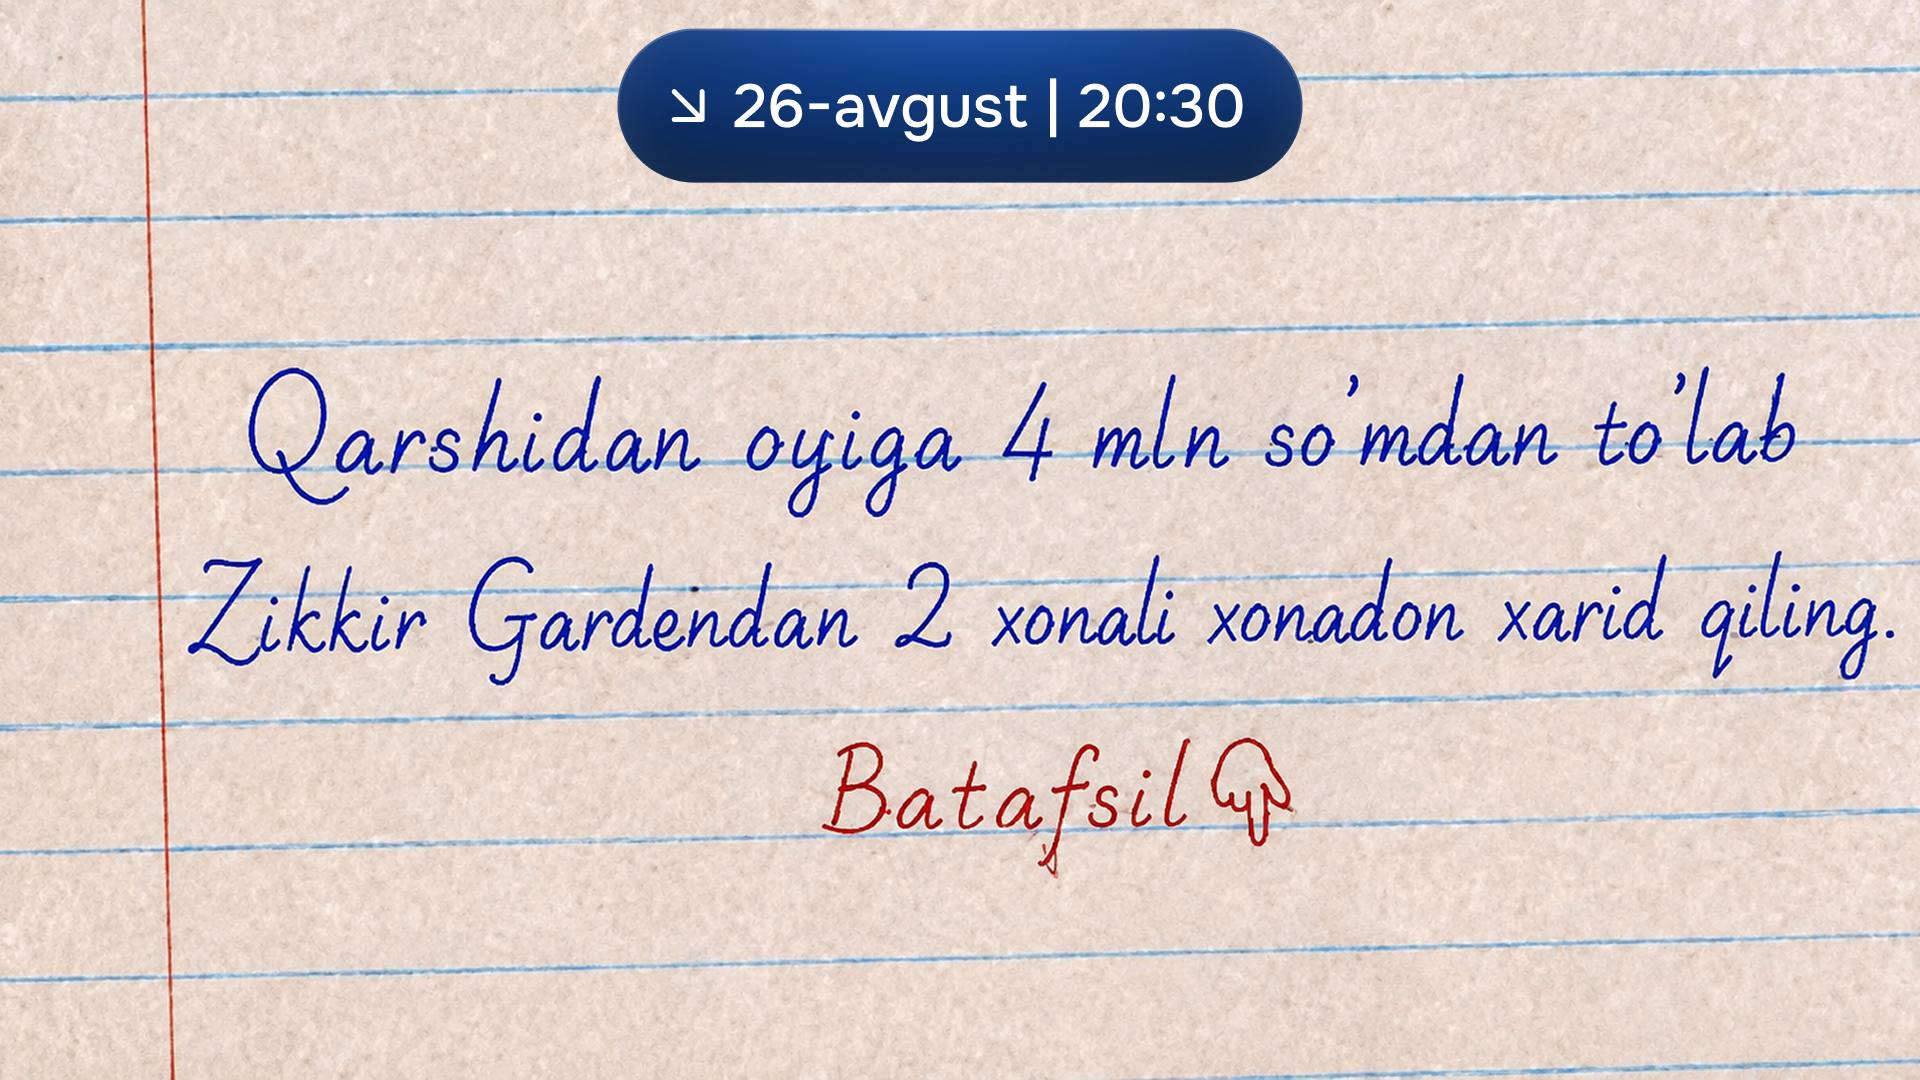 26-avgust | 20:30
Qarshidan oyiga 4 mln so'mdan to'lab
Zikkir Gardendan 2 xonali xonadon xarid qiling.
Batafsil